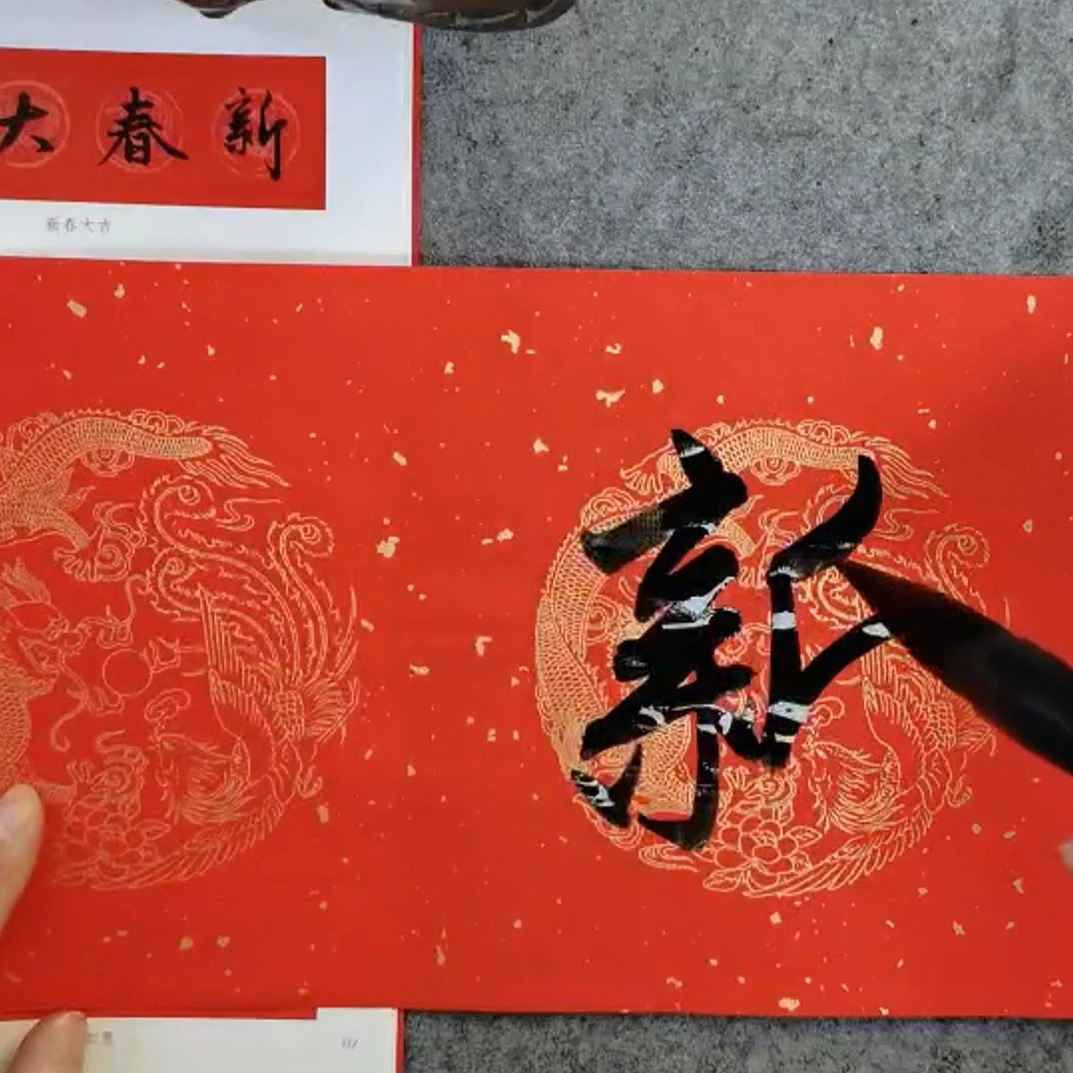 新春大
新春大吉
新